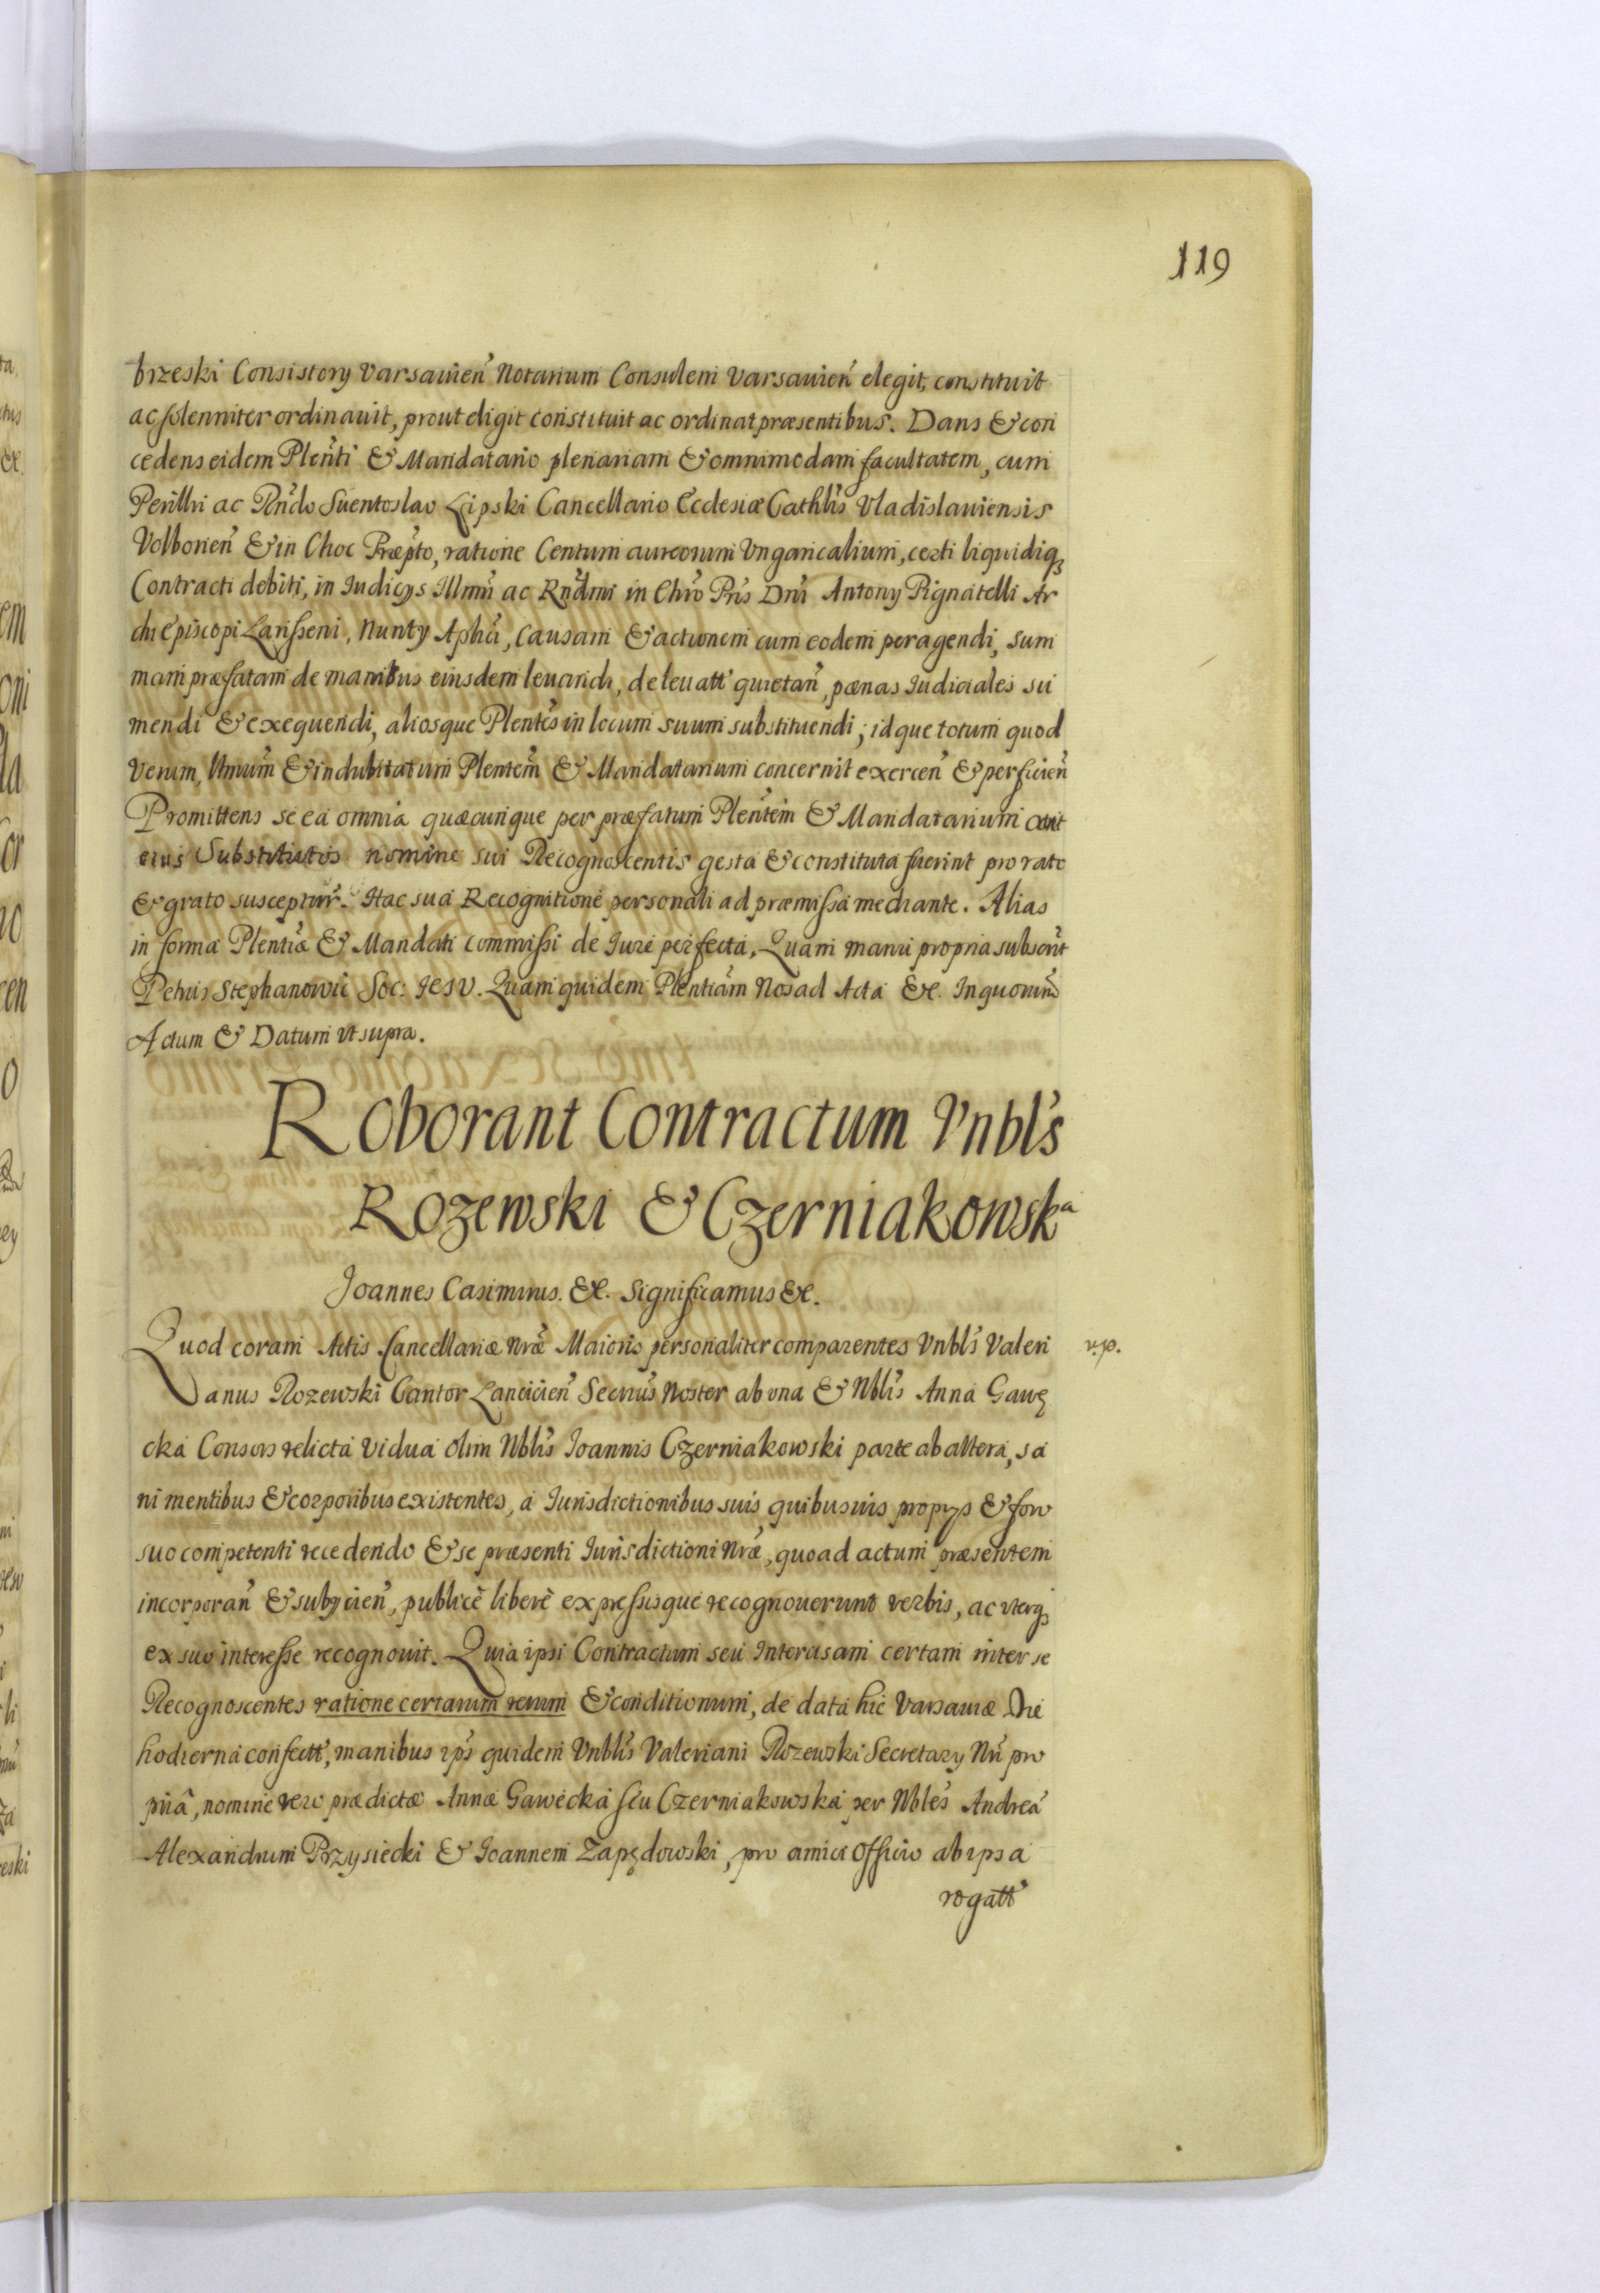 119
brzeski Consistory Varsavien̄ Notarium Consulem Varsavien̄ elegit, constituit
ac solenniter ordinavit, prout eligit constituit ac ordinat præsentibus. Dans & con
cedens eidem Plen̄ti & Mandatario plenariam & omnimodam facultatem, cum
Perillri ac Rn̄do Suentoslao Lipski Cancellario Ecclesiæ Cathl̄is Vladislaviensis
Volborien̄ & in Choc Præp̄to, ratione Centum aureorum Vngaricalium, certi liquidiq₃
Contracti debiti, in Iudicijs Illm̄i ac Rn̄dmi in Chr̄o Pr̄is Dn̄i Antony Pignatelli Ar
chiEpiscopi Larisseni, Nunty Ap̄hci, causam & actionem cum eodem peragendi, sum
mam præfatam de manibus eiusdem levandi, de levatt̄ quietan̄, pænas Iudiciales su
mendi & exequendi, aliosque Plentēs in locum suum substituendi; id que totum quod
verum, l̄timum̄ & indubitatum Plentem̄ & Mandatarium concernit exercen̄ & perficien̄
Promittens se ea omnia quæcunque per præfatum Plen̄tem & Mandatarium aut
eius Substitutos nomine sui Recognoscentis gesta & constituta fuerint pro rato
& grato susceptur̄. Hac sua Recognitione personali ad præmissa mediante. Alias
in forma Plentiæ & Mandati commissi de Iure perfecta, Quam manu propria subscri̅t
Petrus Stephanowic Soc: IESV. Quam quidem Plentiam̄ Nos ad Acta &c. In quorum̄
Actum & Datum vt supra.
Roborant Contractum Vnbl̄s
Rozewski & Czerniakowskᵃ
Joannes Casimirus. &c. Significamus &c.
Quod coram Actis Cancellariæ Nrǣ Maioris personaliter comparentes Vnbl̄s Valeri
v.p.
anus Rozewski Cantor Lancicien̄ Secrius̄ Noster ab vna & Nbl̄is Anna Gawę
cka Consors relicta vidua olim Nbl̄is Joannis Czerniakowski parte ab altera, sa
ni mentibus & corporibus existentes, a Iurisdictionibus suis quibusvis propijs & foro
suo competenti recedendo & se præsenti Iurisdictioni Nrǣ, quoad actum præsentem
incorporan̄ & subijcien̄, publicè liberè expressisque recognoverunt verbis, ac vterq₃
ex suo interesse recognovit. Quia ipsi Contractum seu Intercisam certam inter se
Recognoscentes ratione certarum rerum & conditionum, de data hic Varsaviæ Die
hodierna confectt̄, manibus ips̄ quidem Vnbl̄is Valeriani Rozewski Secretary Nr̄i pro
priâ, nomine vero prædictæ Annæ Gawecka seu Czerniakowska per Nblēs Andreā
Alexandrum Przysiecki & Joannem Zapędowski, pro amici officio ab ipsa
rogatt̄